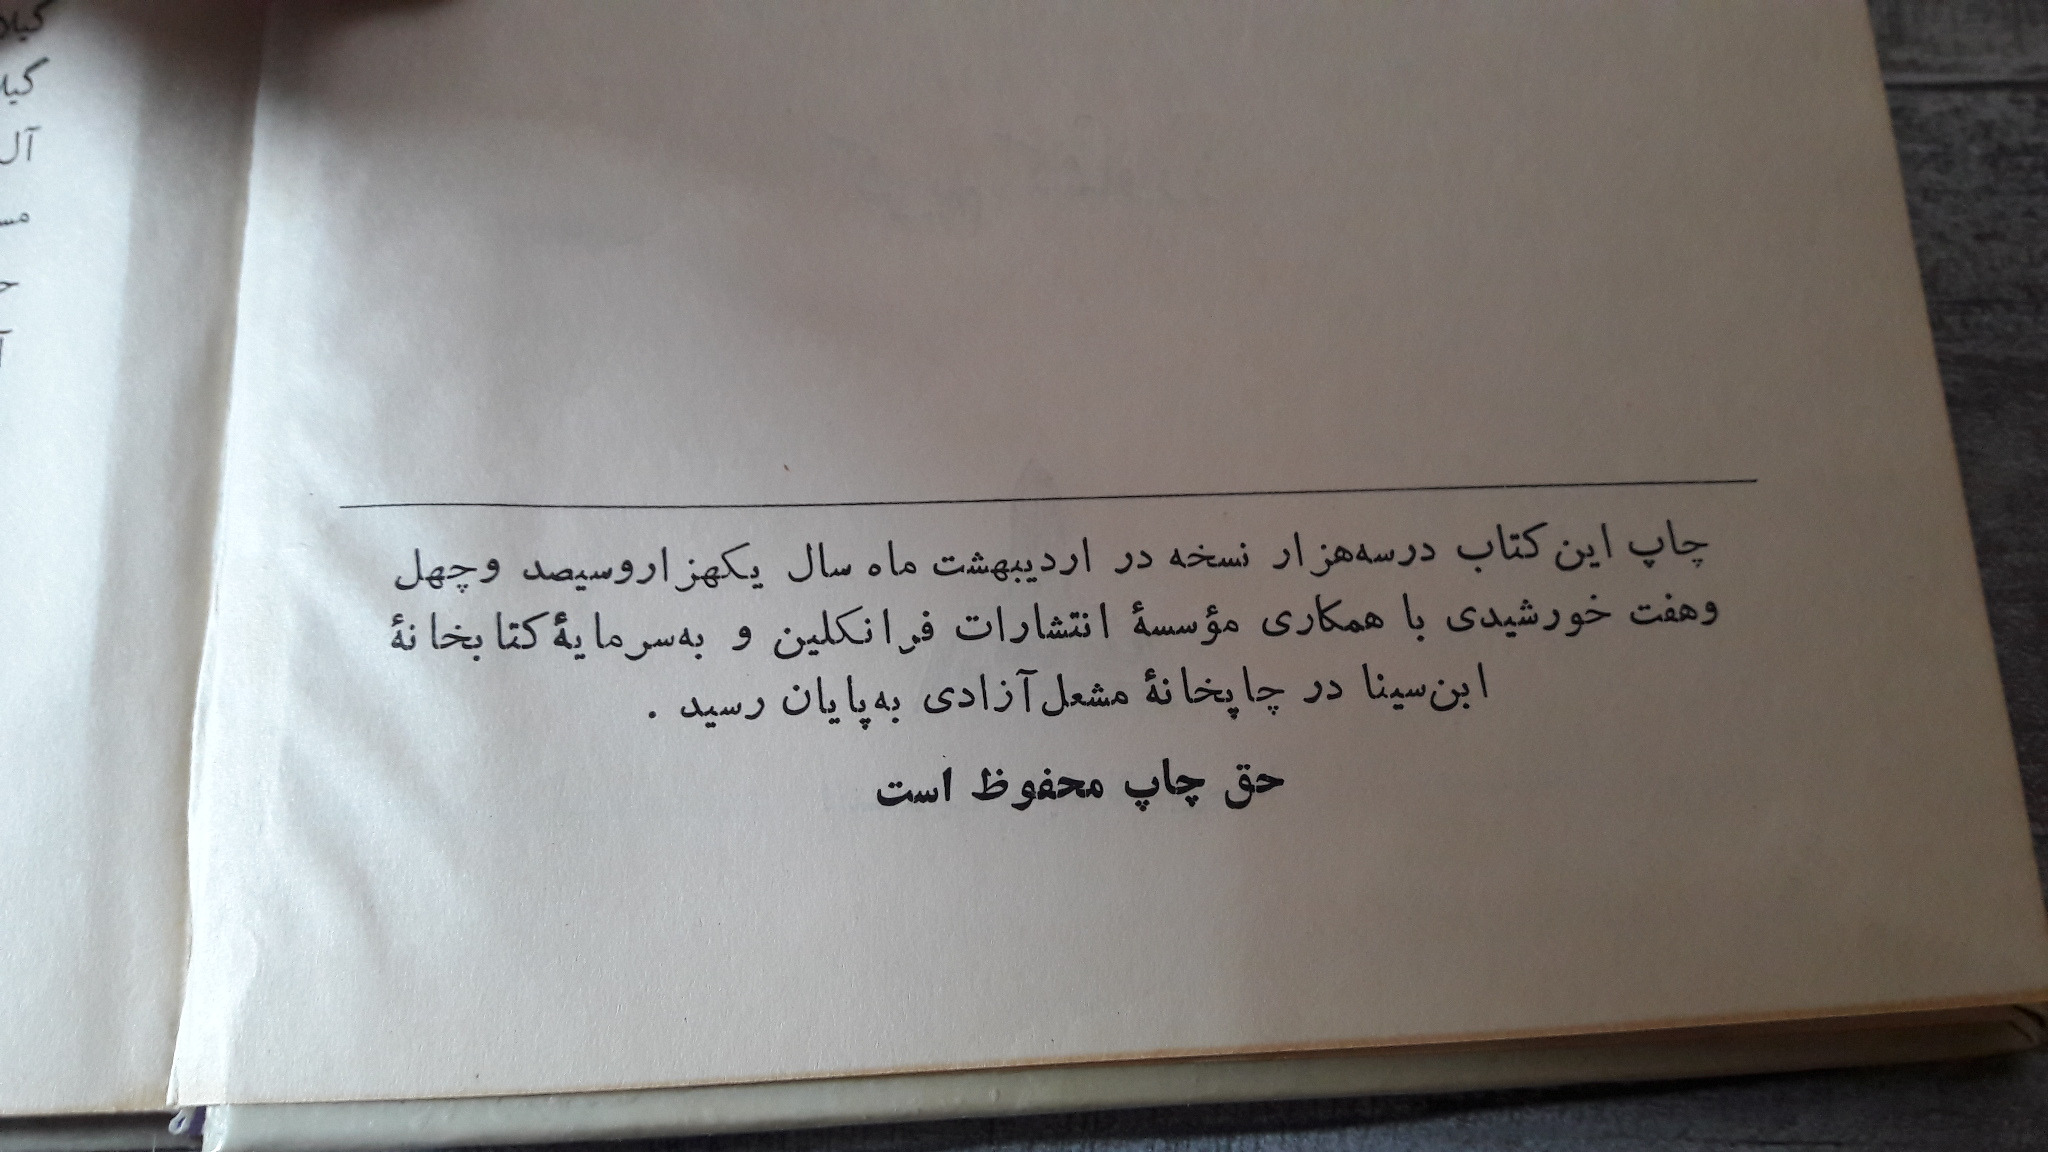 چاپ این کتاب درسه‌هزار نسخه در اردیبهشت ماه سال یکهزاروسیصد وچهل
وهفت خورشیدی با همکاری مؤسسهٔ انتشارات فرانکلین و به‌سرمایهٔ کتابخانهٔ
ابن‌سینا در چاپخانهٔ مشعل‌آزادی به‌پایان رسید .
حق چاپ محفوظ است
آل